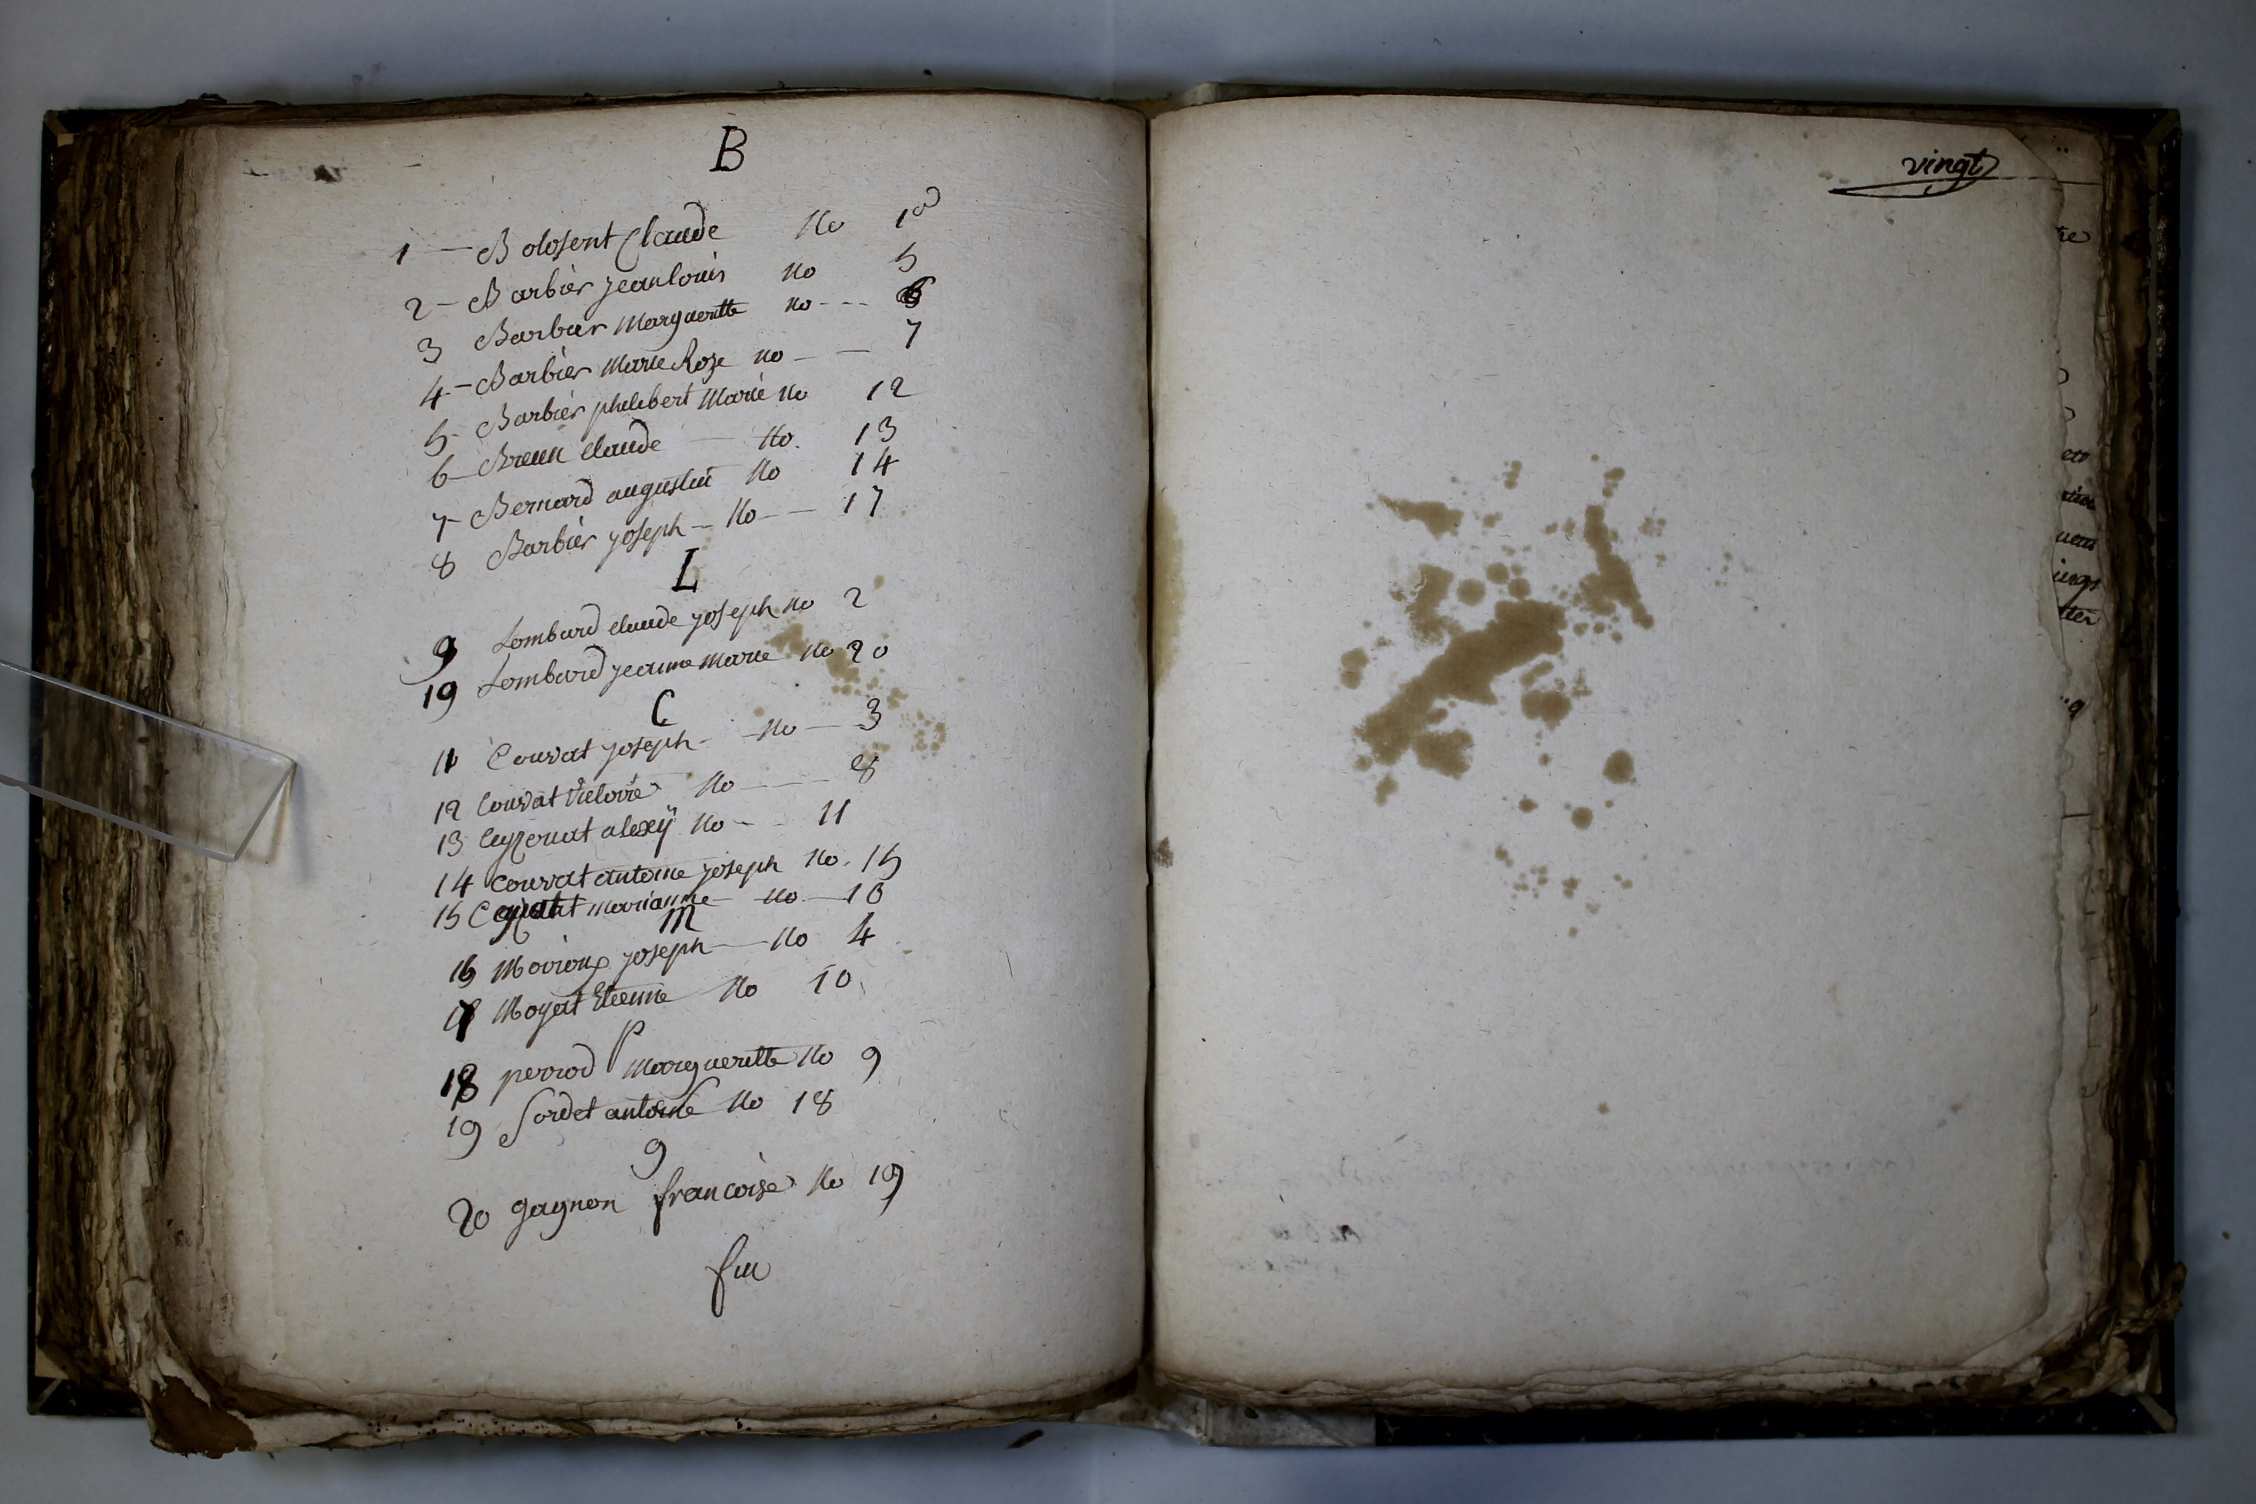 B
1 — Bolosent Claude No 1er
2 — Barbier jean louis No 5
3 Barbier Margueritte no --- 6
4 — Barbier Marie Roze no — — 7
5 - Barbier philebert Marie No 12
6 — Breun Claude — No. 13
7 — Bernard augustin No 14
8 Barbier joseph — No — — 17
L
9 Lombard claude joseph no 2
19 Lombard jeanne marie No 20
C
11 Couvat joseph - - No — 3
12 Couvat Victoire No — — 8
13 alexij No - - 11
14 Couvat antoine joseph No. 15
15 marianne — No — 16
M
16 joseph — No 4
17 Moyat Etienne No 10
P
18 perrod Margueritte No 9
19 Sordet antoine No 18
g
20 gagnon francoise No 19
fin
vingt